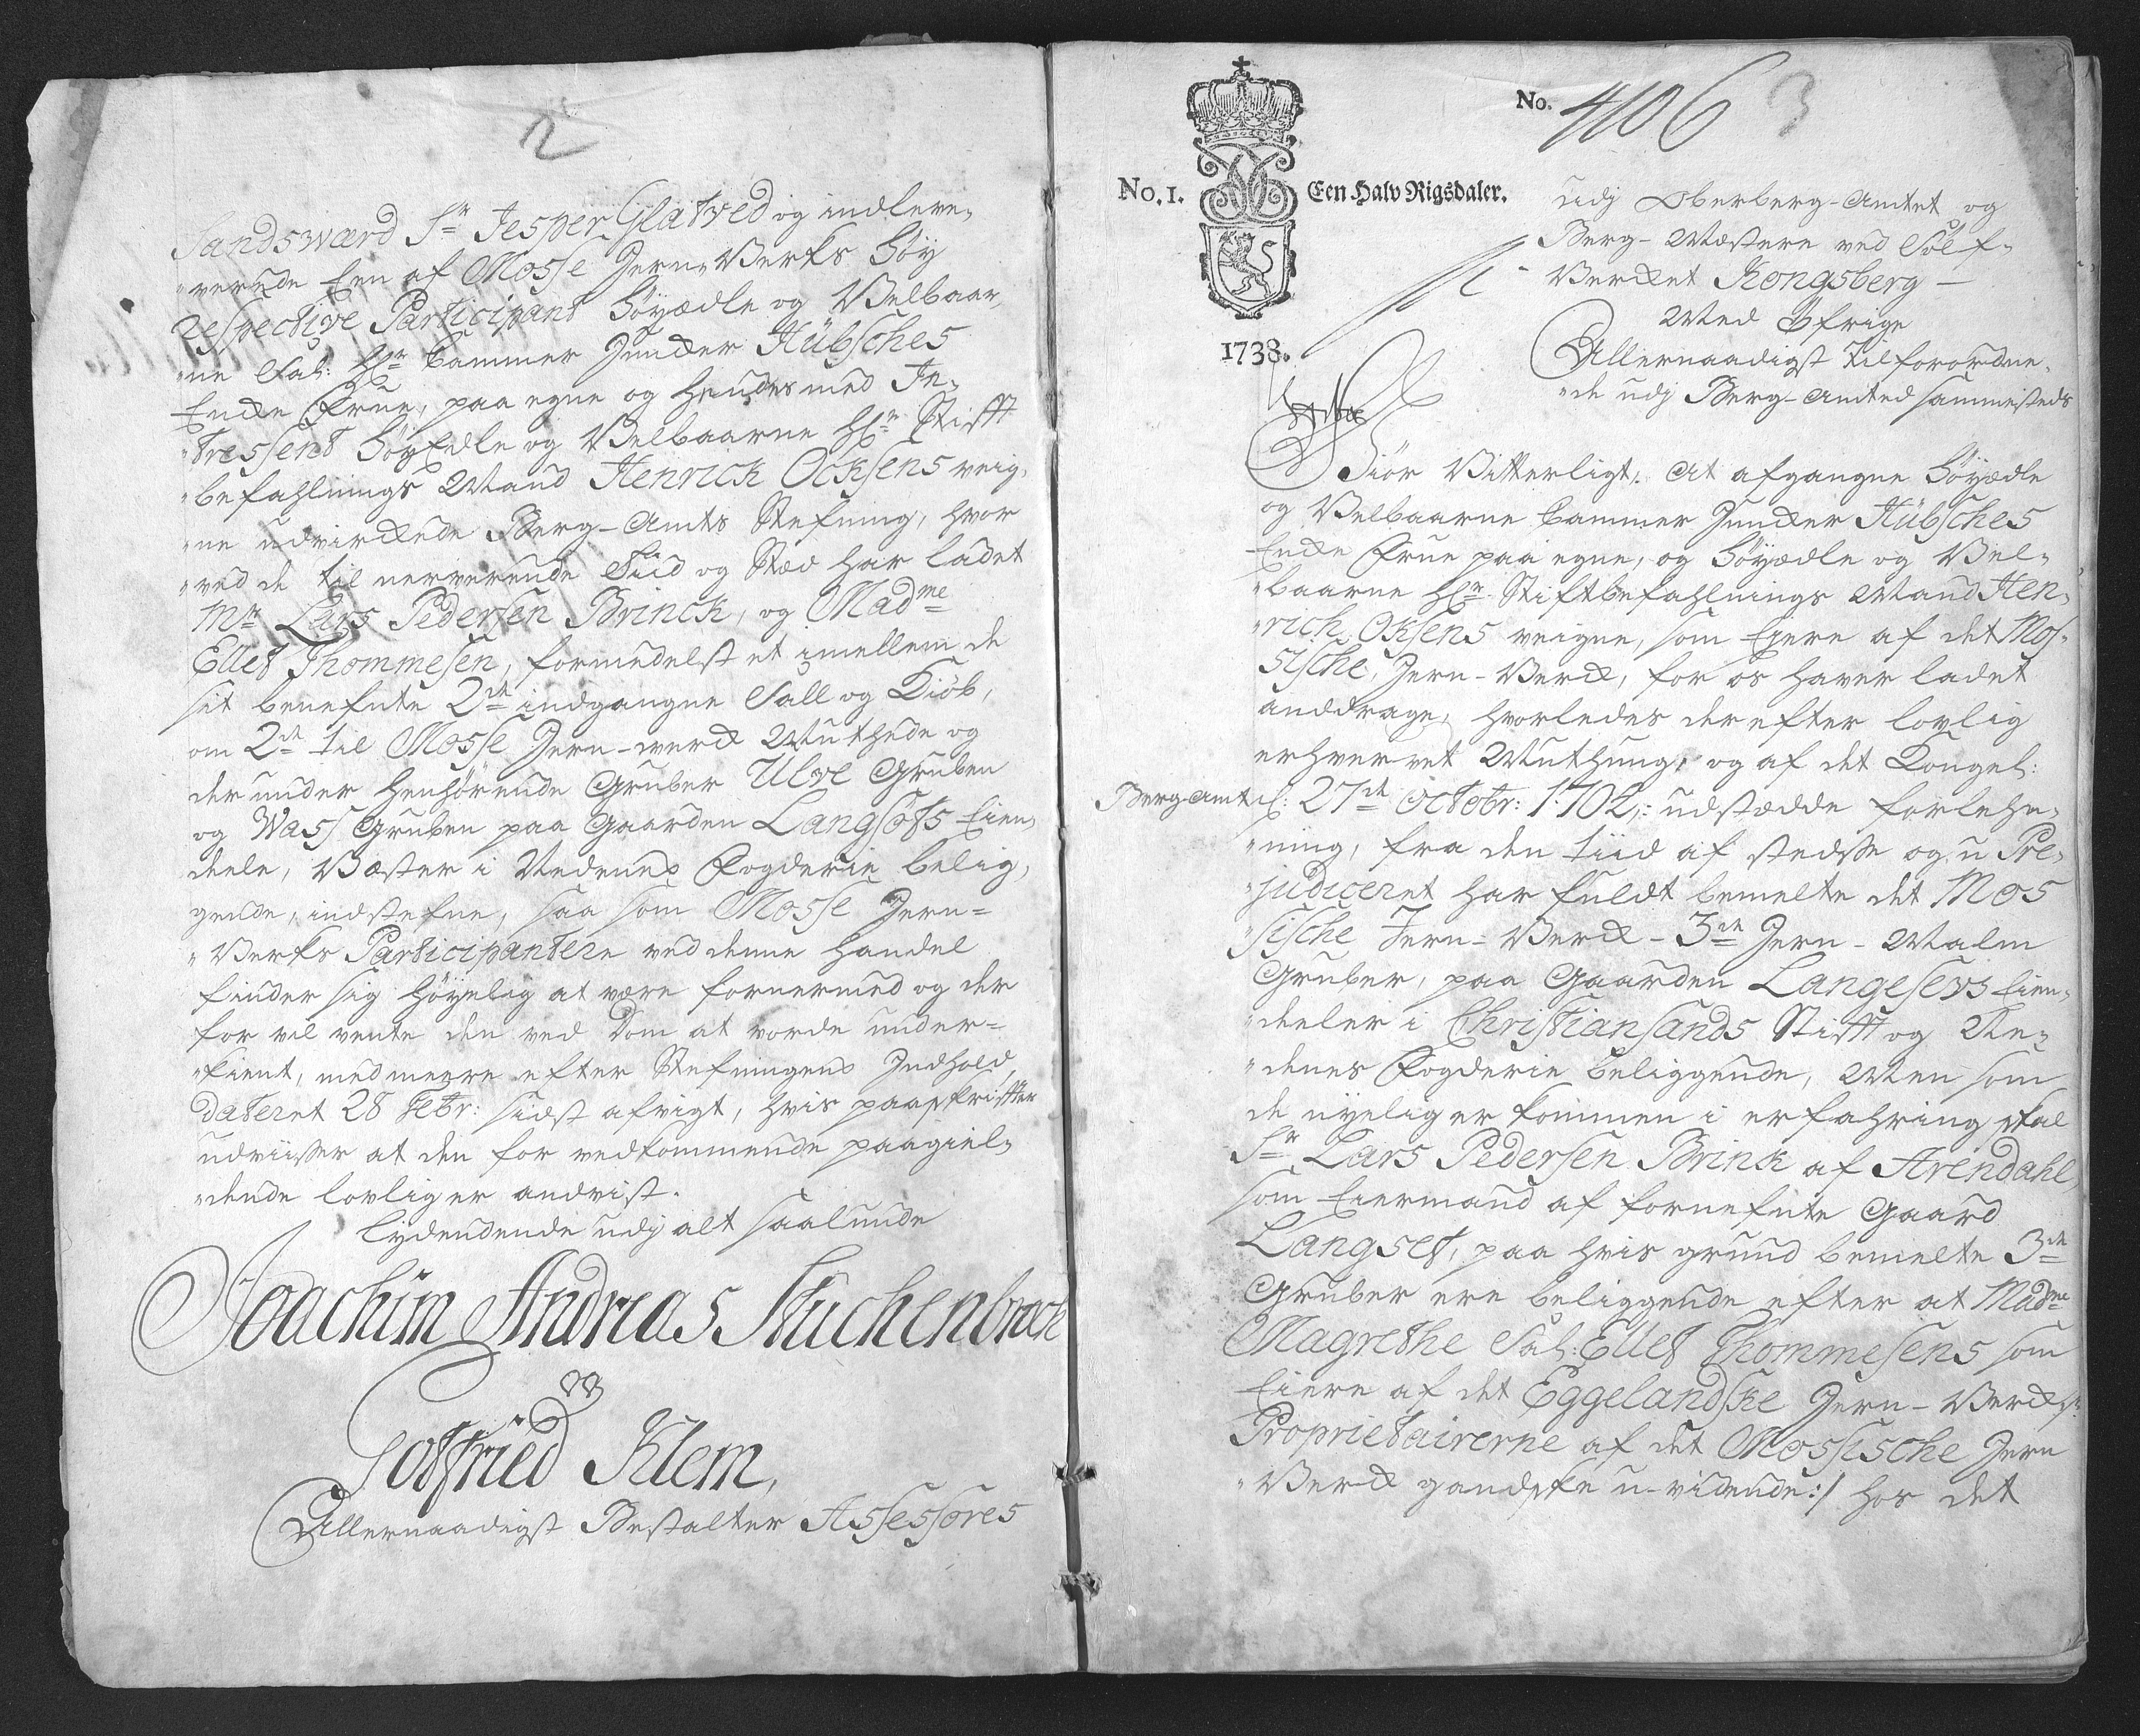 2
Sandsværd Sr Jesper Glatved og indleve,
„rerede Een af Mosse Jern-Verks Höy
respective Participant Höyædle og Velbaar,
„ne Sal: Hr Cammer Juncker Hübsches
Encke Frue, paa egne og hendes med In„
„tressent HöyEdle og Velbaarne Hr Stifft
„befahlnings Mand Henrick Ocksens veig,
„ne udvirckede Berg-Amts Stefning, hvor
„ved de til nerverende Tiid og Stæd har ladet
Mr Lars Pedersen Brinck, og Madme
Ellef Thommesen, formedelst et imellem de
sit benefnte 2de indgangne Sall og Kiöb,
om 2de til Mosse Jern-werck Muthede og
der under henhörende Gruber Ulve Gruben
og Wass Gruben paa Gaarden Langsöts Eien„
deele, Væster i Nedenes Fogderie belig„
gende, indstefne, saa som Mosse Jern=
„Verks Participantere ved denne Handel
finder sig höyelig at være fornermed og der
for vil vente den ved Dom at vorde under=
„kient, med meere efter Stefningens Indhold,
dateret 28 Febr: sidst afvigt, hvis paaskriffter
udviisser at den for vedkommende paagiel„
„dende lovlig er andvist.
lydendende udj alt saalunde
Joachim Andreas Stuchenbrock
Gotfried Klem,
Allernaadigst Bestalter Assessores
No. 4106 3
No. 1. Een Halv Rigsdaler.
1738.
udj Oberberg-Amtet og
Berg-Mestere ved Sölf„
Vercket Kongsberg –
Med Öfrige
Allernaadigst Tilforordne„
„de udj Berg-Amted sammesteds
Giör Vitterligt: At afgangne Höyædle
og Velbaarne Cammer Juncker Hübsches
Encke Frue paa egne, og Höyædle og Vel„
„baarne Hr. Stiftbefahlnings Mand Hen„
„rich Oksens veigne, som Eiere af det Mos„
sische Jern-Verck, for os haver ladet
anddrage, hvorledes der efter lovlig
erhvervet Muthung, og af det Kongel:
Berg-Amt d: 27de Octobr: 1702,: udstædde forlehn„
„ning, fra den tiid af stedsse og u Pre„
„judiceret har fuldt bemelte det Mos
„sische Jern-Verck – 3de Jern-Malm
Gruber, paa Gaarden Langesevs Eien„
„deeler i Christiansands Stifft og Ne„
„denes Fogderie beliggende, Men som
de nyelig er kommen i erfahring skal
Sr Lars Pedersen Brink af Arendahl,
som Eiermand af fornefnte Gaard
Langset, paa hvis grund bemelte 3de
Gruber ere beliggende efter at Madme
Magrethe Sal: Ellef Thommesens som
Eiere af det Eggelandske Jern-Verck
Proprietairerne af det Mossische Jern
„Verck gandske u-vidende:/ hos det